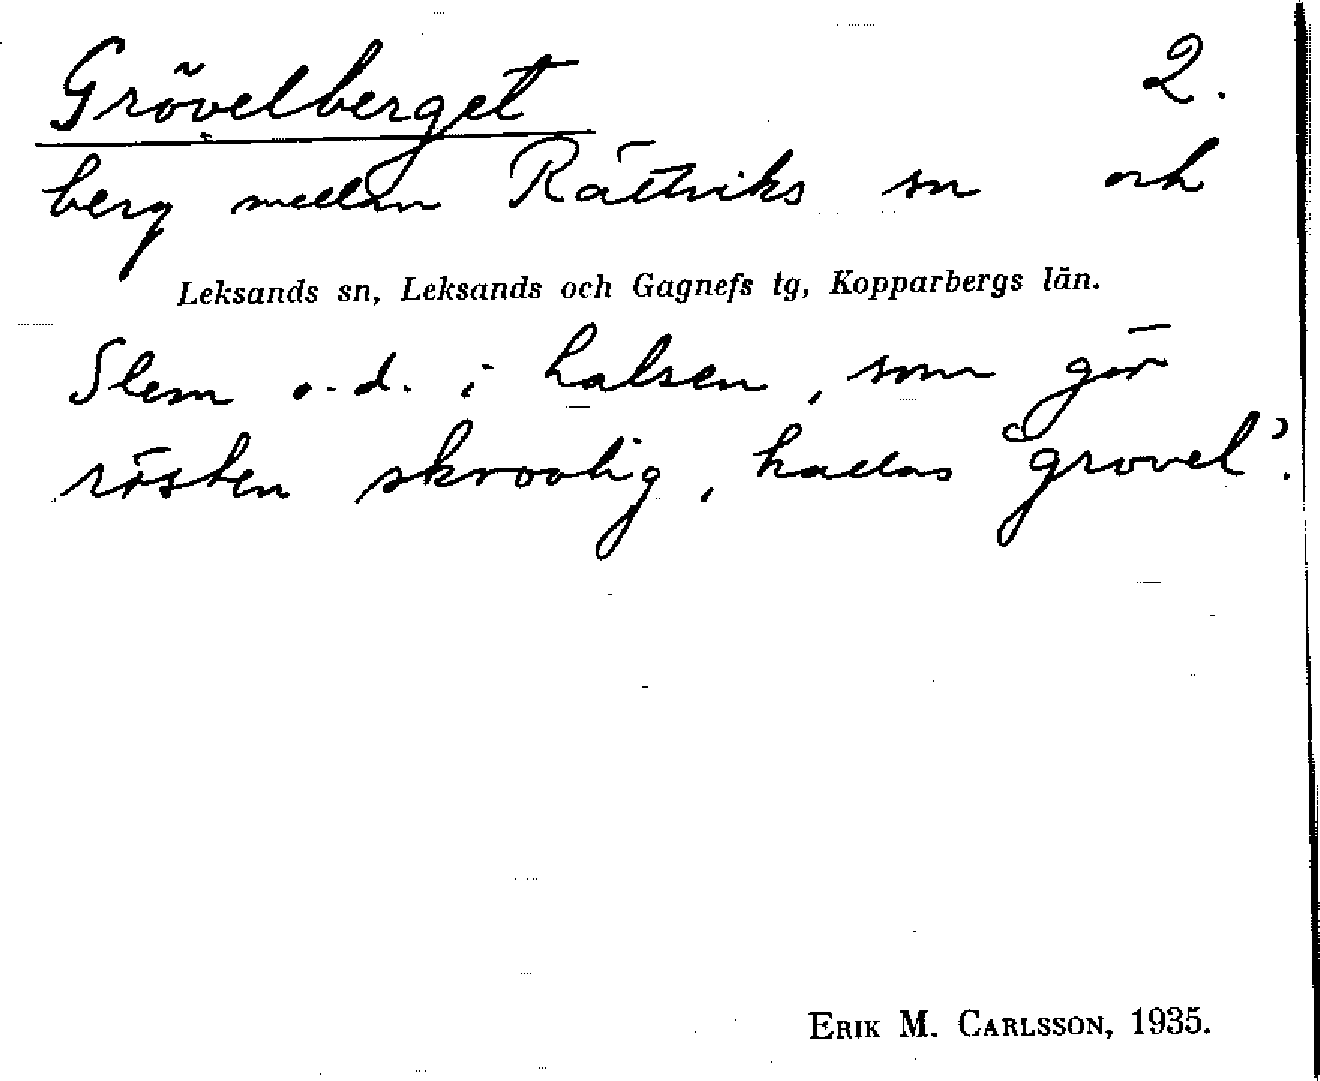 Grövelberget 2.
berg mellan Rättviks sn och
Leksands sn, Leksands och Gagnefs tg, Kopparbergs län.
Slem o.d. i halsen, som gör
rösten skrovlig, kallas "grovel".
ERIK M. CARLSSON, 1935.